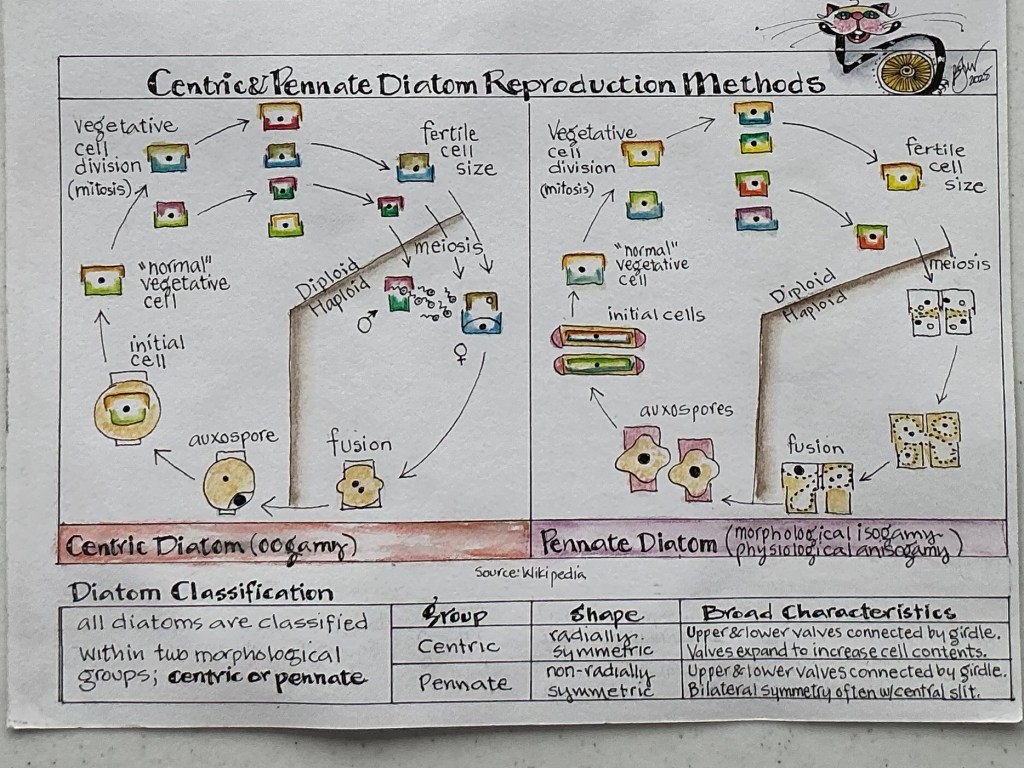 Centric & Pennate Diatom Reproduction Methods
2025
vegetative
cell
division
(mitosis)
fertile
cell
size
meiosis
"normal"
vegetative
cell
Diploid
Haploid
♂
♀
initial
cell
auxospore
fusion
Vegetative
cell
division
(mitosis)
fertile
cell
size
meiosis
"normal"
vegetative
cell
Diploid
Haploid
initial cells
auxospores
fusion
Centric Diatom (oogamy)
Pennate Diatom (morphological isogamy
physiological anisogamy)
Source: Wikipedia
Diatom Classification
all diatoms are classified
within two morphological
groups; centric or pennate
Group
Shape
Broad Characteristics
Centric
radially
symmetric
Upper & lower valves connected by girdle.
Valves expand to increase cell contents.
Pennate
non-radially
symmetric
Upper & lower valves connected by girdle.
Bilateral symmetry often w/central slit.